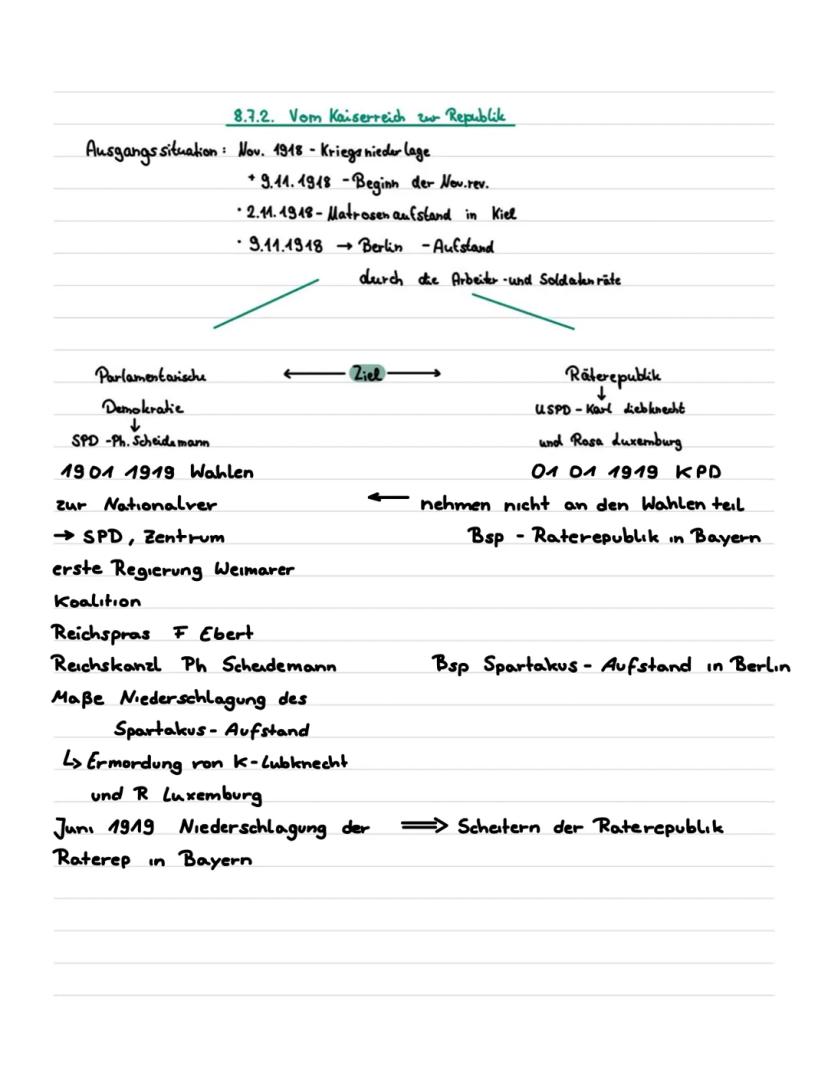 8.7.2. Vom Kaiserreich zur Republik
Ausgangssituation: Nov. 1918 - Kriegsniederlage
+ 9.11.1918 - Beginn der Nov.rev.
· 2.11.1918 - Matrosenaufstand in Kiel
· 9.11.1918 → Berlin - Aufstand
durch die Arbeiter- und Soldatenräte
Parlamentarische ← Ziel → Räterepublik
Demokratie
↓
SPD - Ph. Scheidemann
↓
USPD - Karl Liebknecht
und Rosa Luxemburg
19 01 1919 Wahlen
zur Nationalver
01 01 1919 KPD
← nehmen nicht an den Wahlen teil
Bsp - Raterepublik in Bayern
→ SPD, Zentrum
erste Regierung Weimarer
Koalition
Reichspras F Ebert
Reichskanzl Ph Scheidemann
Bsp Spartakus - Aufstand in Berlin
Maße Niederschlagung des
Spartakus - Aufstand
↳ Ermordung von K-Lubknecht
und R Luxemburg
Juni 1919 Niederschlagung der ⟹ Scheitern der Raterepublik
Raterep in Bayern